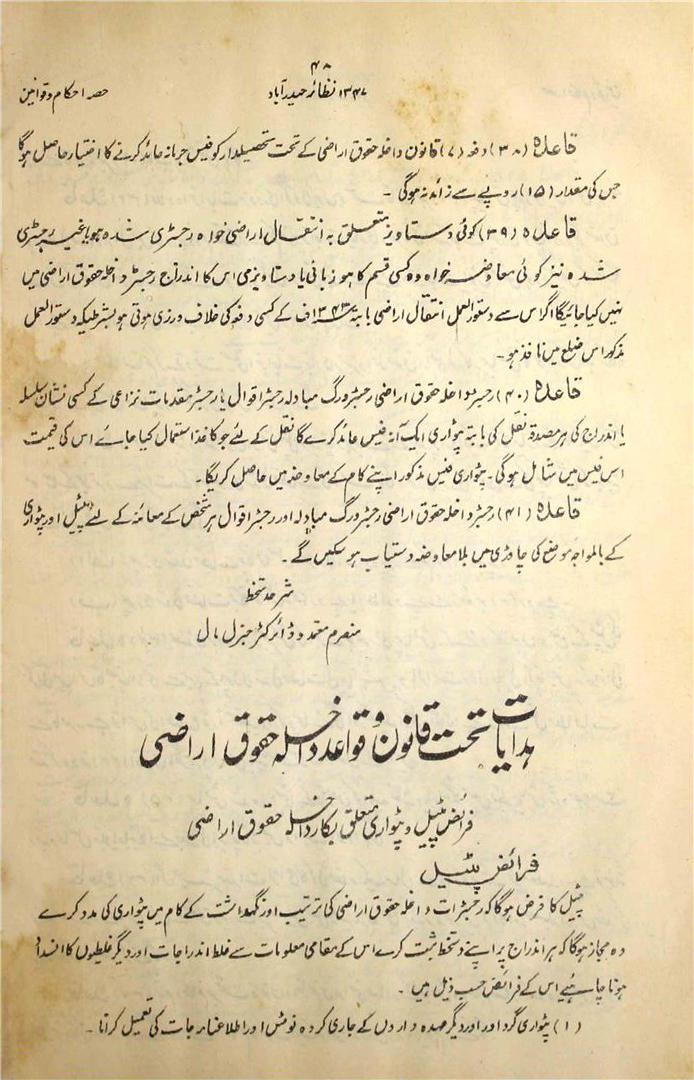 ۴۸
حصہ احکام و قوانین ۱۳۴۷ نظائر حیدرآباد
قاعدہ (۳۸) دفعہ (۷) قانون داخلہ حقوق اراضی کے تحت تحصیلدار کو فیس جرمانہ عائد کرنے کا اختیار حاصل ہوگا
جس کی مقدار (۱۵) روپے سے زائد نہ ہوگی ۔
قاعدہ (۳۹) کوئی دستاویز متعلق بہ انتقال اراضی خواہ رجسٹری شدہ ہو یا غیر رجسٹری
شدہ نیز کوئی معاوضہ خواہ وہ کسی قسم کا ہو زبانی یا دستاویزی اس کا اندراج رجسٹر داخلہ حقوق اراضی میں
نہیں کیا جائیگا اگر اس سے دستور العمل انتقال اراضی بابتہ ف کے کسی دفعہ کی خلاف ورزی ہوتی ہو بشرطیکہ دستور العمل
مذکور اس ضلع میں نافذ ہو ۔
قاعدہ (۴۰) رجسٹر داخلہ حقوق اراضی رجسٹر ورگ مبادلہ رجسٹر اقوال یا رجسٹر مقدمات نزاعی کے کسی نشان سلسلہ
یا اندراج کی ہر مصدقہ نقل کی بابتہ پٹواری ایک آنہ فیس عائد کرے گا نقل کے لئے جو کاغذ استعمال کیا جائے اس کی قیمت
اس فیس میں شامل ہوگی ۔ پٹواری فیس مذکور اپنے کام کے معاوضہ میں حاصل کریگا ۔
قاعدہ (۴۱) رجسٹر داخلہ حقوق اراضی رجسٹر ورگ مبادلہ اور رجسٹر اقوال ہر شخص کے معائنہ کے لئے پٹیل اور پٹواری
کے بالمواجہ موضع کی چاوڑی میں بلا معاوضہ دستیاب ہو سکیں گے ۔
شرحد ستخط
منصرم معتمد و ڈائرکٹر جنرل مال
ہدایات تحت قانون و قواعد داخلہ حقوق اراضی
فرائض پٹیل و پٹواری متعلق بکار داخلہ حقوق اراضی
فرائض پٹیل
پٹیل کا فرض ہوگا کہ رجسٹرات داخلہ حقوق اراضی کی ترتیب اور نگہداشت کے کام میں پٹواری کی مدد کرے
وہ مجاز ہوگا کہ ہر اندراج پر اپنے دستخط ثبت کرے اس کے مقامی معلومات سے غلط اندراجات اور دیگر غلطیوں کا انسداد
ہونا چاہئیے اس کے فرائض حسب ذیل ہیں ۔
(۱) پٹواری گرداور اور دیگر عہدہ داروں کے جاری کردہ نوٹس اور اطلاعنامہ جات کی تعمیل کرانا ۔